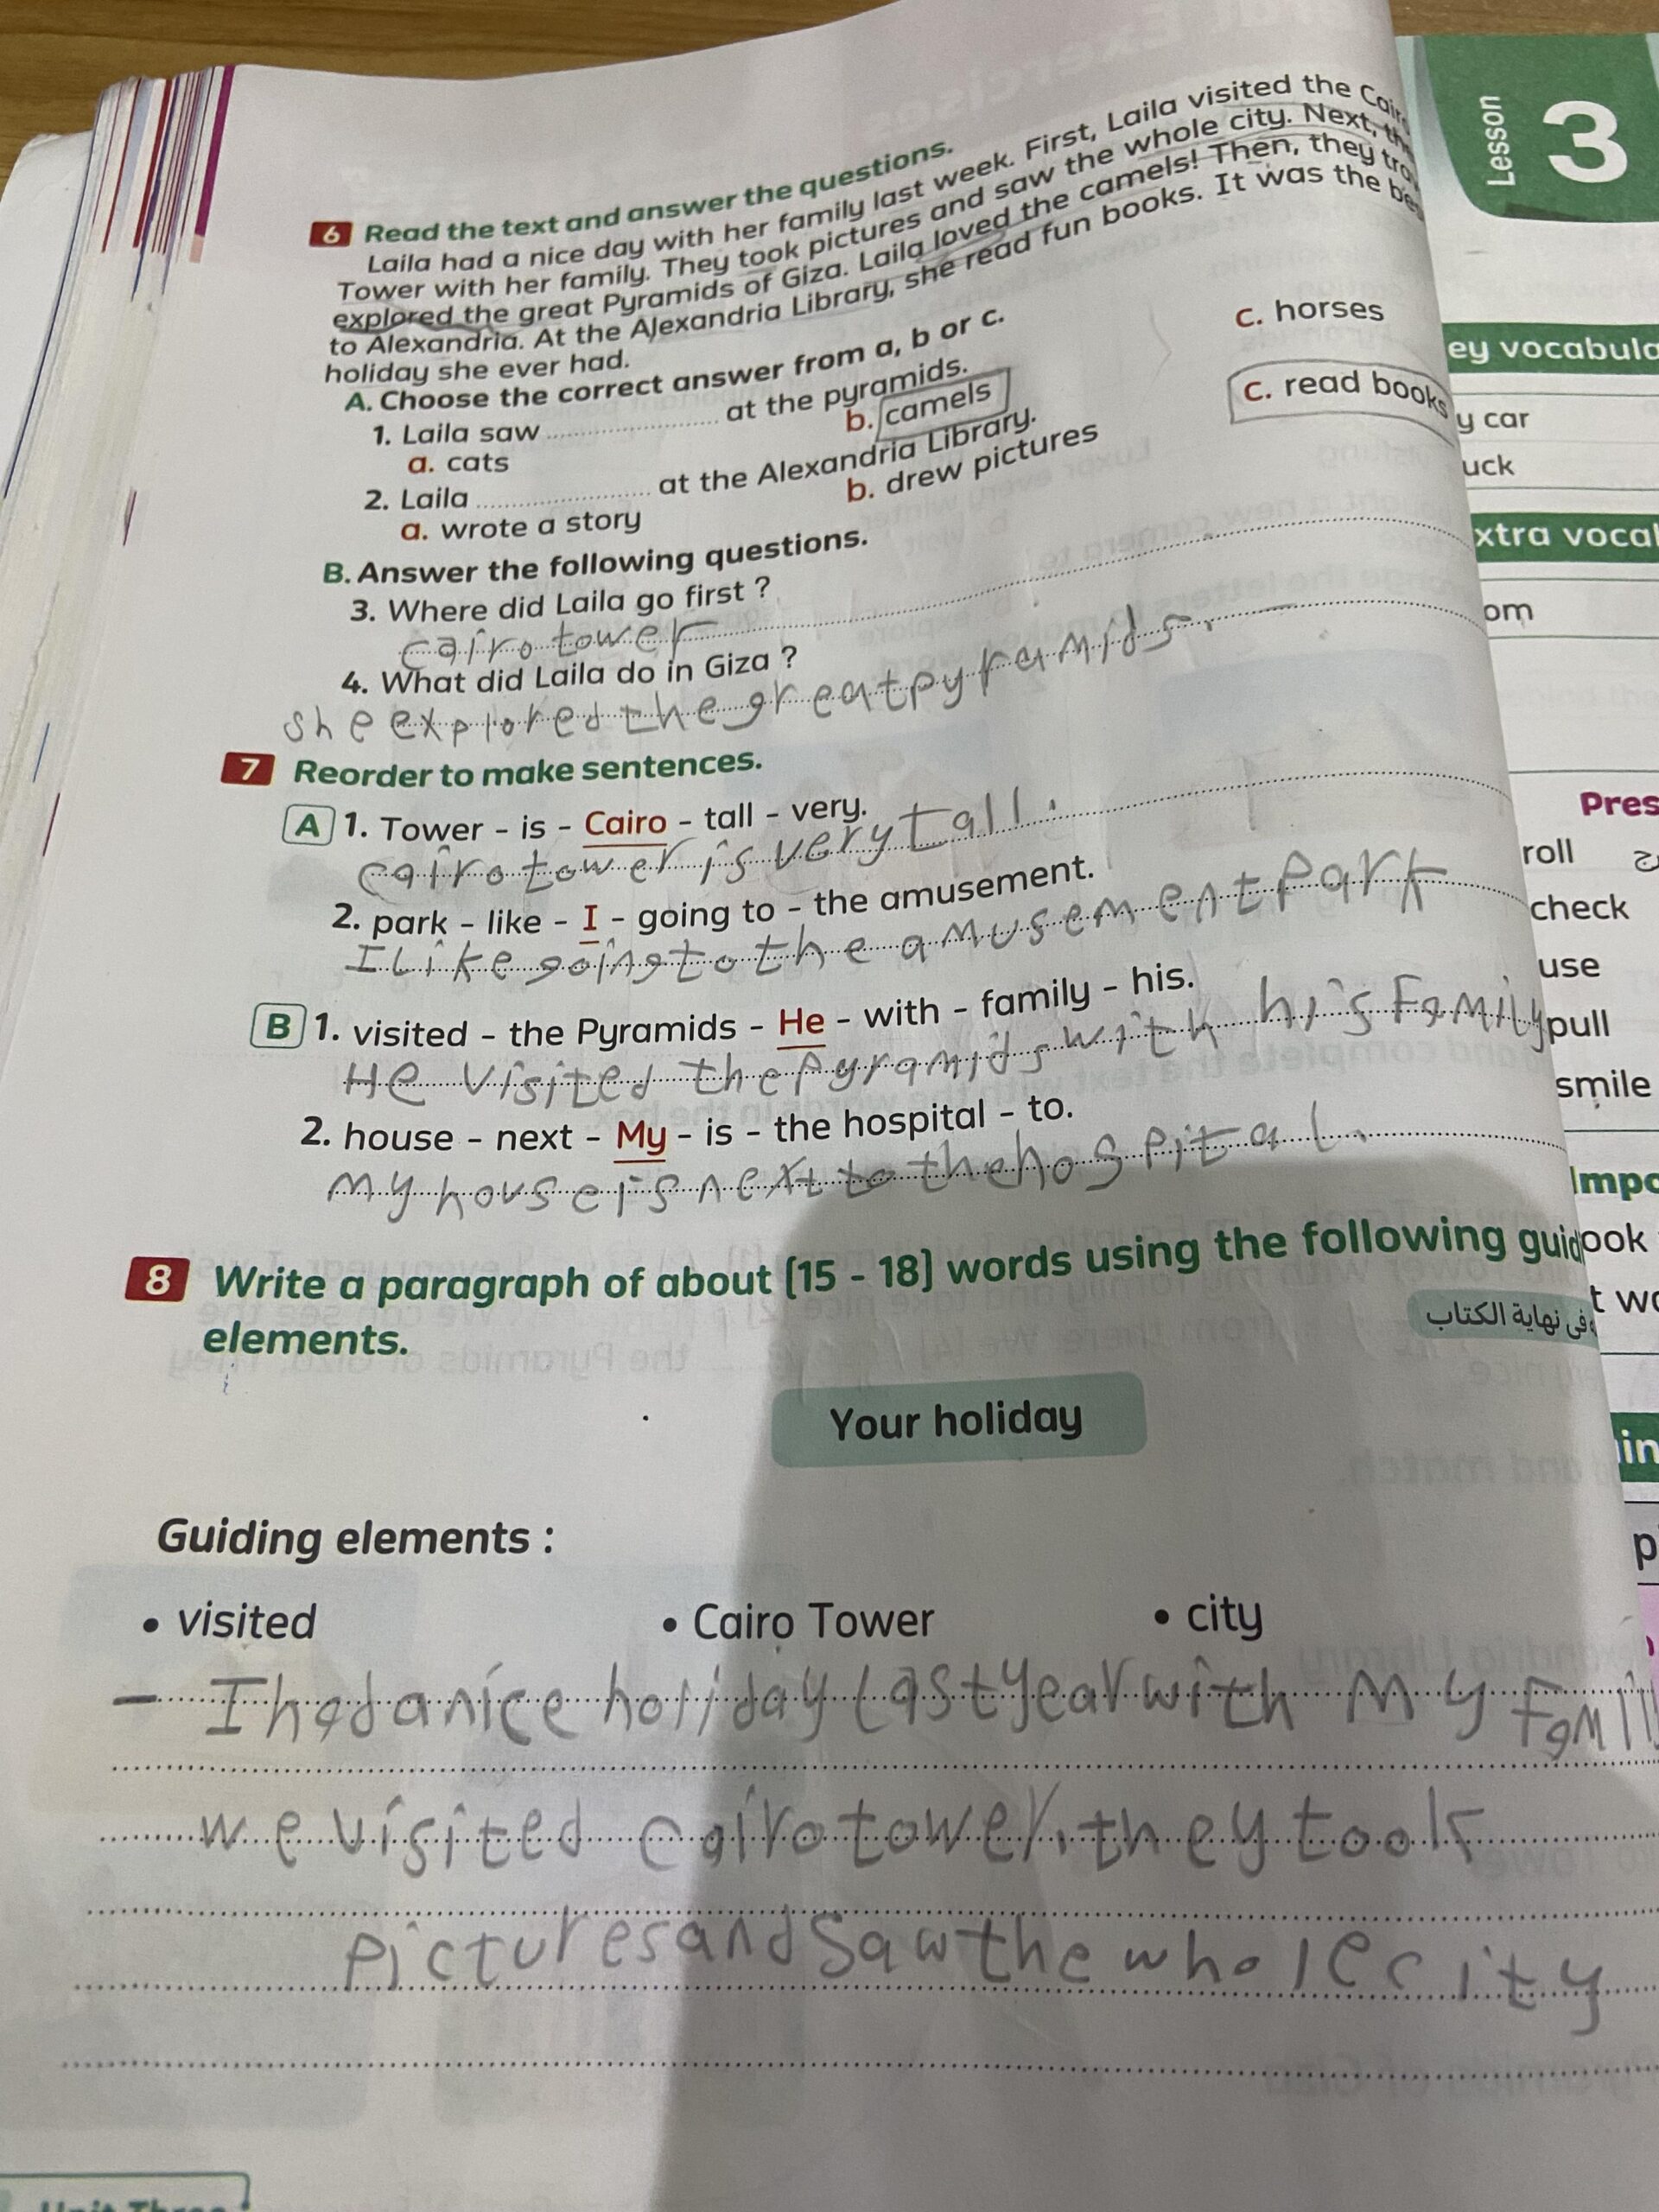 6 Read the text and answer the questions.
Laila had a nice day with her family last week. First, Laila visited the
Tower with her family. They took pictures and saw the whole city. Next,
explored the great Pyramids of Giza. Laila loved the camels! Then, they
to Alexandria. At the Alexandria Library, she read fun books. It was the
holiday she ever had.
A. Choose the correct answer from a, b or c.
1. Laila saw .................... at the pyramids.
a. cats b. camels c. horses
2. Laila .................... at the Alexandria Library.
a. wrote a story b. drew pictures c. read books
B. Answer the following questions.
3. Where did Laila go first ?
cairo tower
4. What did Laila do in Giza ?
she explored the great pyramids.
7 Reorder to make sentences.
A 1. Tower - is - Cairo - tall - very.
cairo tower is very tall.
2. park - like - I - going to - the amusement.
I like going to the amusement park
B 1. visited - the Pyramids - He - with - family - his.
He visited the pyramids with his family
2. house - next - My - is - the hospital - to.
My house is next to the hospital.
8 Write a paragraph of about (15 - 18) words using the following
elements.
فى نهاية الكتاب
Your holiday
Guiding elements :
• visited • Cairo Tower • city
– I had a nice holiday last year with my
we visited cairo tower. they took
pictures and saw the whole city
Lesson 3
y car
uck
roll
check
use
pull
smile